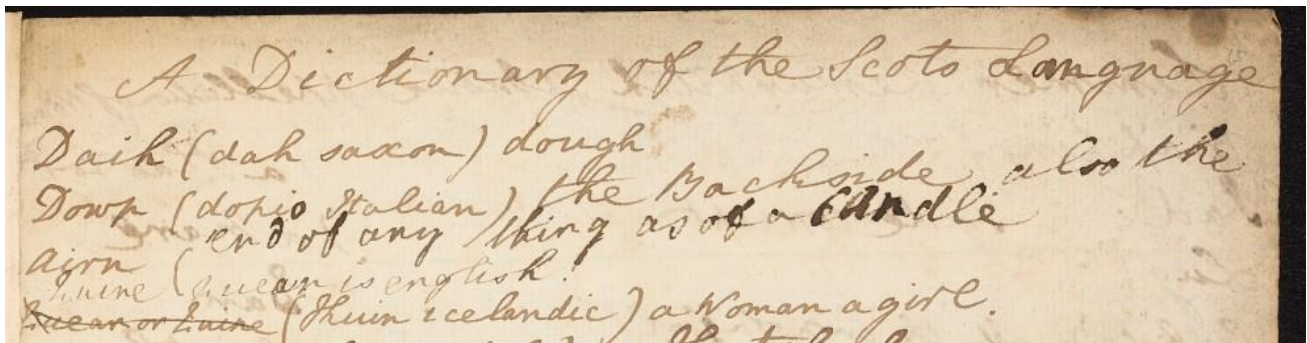 A Dictionary of the Scots Language
Daih (dah saxon) dough
Dowp (dopio Italian) the Backside also the
end of any thing as of a candle
airn (
is english.
or (Kuin icelandic) a Woman a girl.